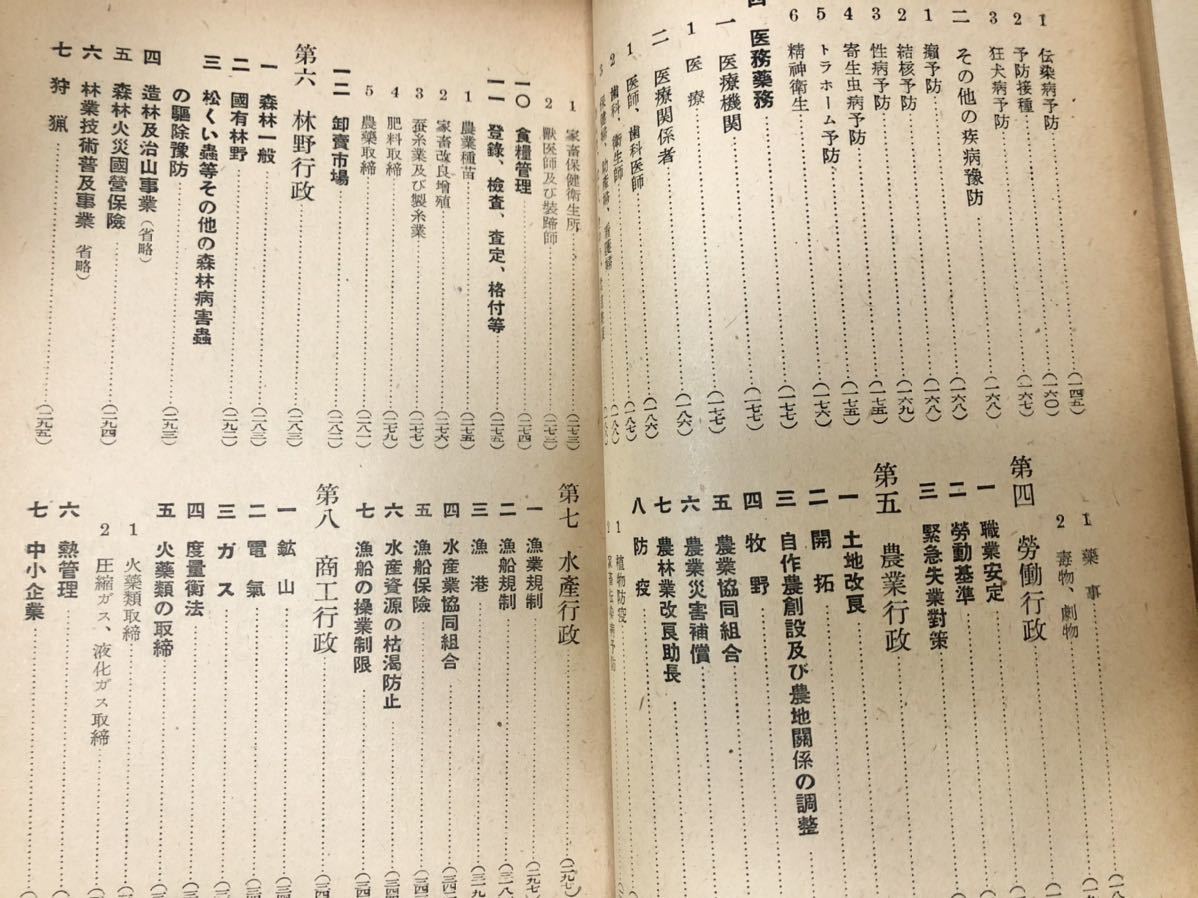 1 伝染病予防……(一四五)
2 予防接種……(一六〇)
3 狂犬病予防……(一六七)
二 その他の疾病豫防……(一六八)
1 癩予防……(一六八)
2 結核予防……(一六八)
3 性病予防……(一六九)
4 寄生虫病予防……(一七五)
5 トラホーム予防……(一七五)
6 精神衛生……(一七六)
四 医務薬務……(一七七)
一 医療機関……(一七七)
1 医療……(一七七)
二 医療関係者……(一八六)
1 医師、歯科医師……(一八六)
2 歯科、衛生師……(一八七)
1 藥事
2 毒物、劇物
第四 勞働行政
一 職業安定
二 勞動基準
三 緊急失業對策
第五 農業行政
一 土地改良
二 開拓
三 自作農創設及び農地關係の調整
四 牧野
五 農業協同組合
六 農業災害補償
七 農林業改良助長
八 防疫
1 植物防疫
1 家畜保健衛生所……(二七三)
2 獸医師及び裝蹄師……(二七三)
一〇 食糧管理……(二七四)
一一 登錄、檢査、査定、格付等……(二七五)
1 農業種苗……(二七五)
2 家畜改良増殖……(二七六)
3 蚕糸業及び製糸業……(二七七)
4 肥料取締……(二七九)
5 農藥取締……(二八一)
一二 卸賣市場……(二八二)
第六 林野行政……(二八三)
一 森林一般……(二八三)
二 國有林野……(二九二)
三 松くい蟲等その他の森林病害蟲
の驅除豫防……(二九三)
四 造林及治山事業(省略)
五 森林火災國營保險……(二九四)
六 林業技術普及事業 省略)
七 狩猟……(二九五)
第七 水產行政……(二九七)
一 漁業規制……(二九七)
二 漁船規制
三 漁港
四 水産業協同組合
五 漁船保險
六 水産資源の枯渇防止
七 漁船の操業制限
第八 商工行政
一 鉱山
二 電氣
三 ガス
四 度量衡法
五 火藥類の取締
1 火藥類取締
2 圧縮ガス、液化ガス取締
六 熱管理
七 中小企業